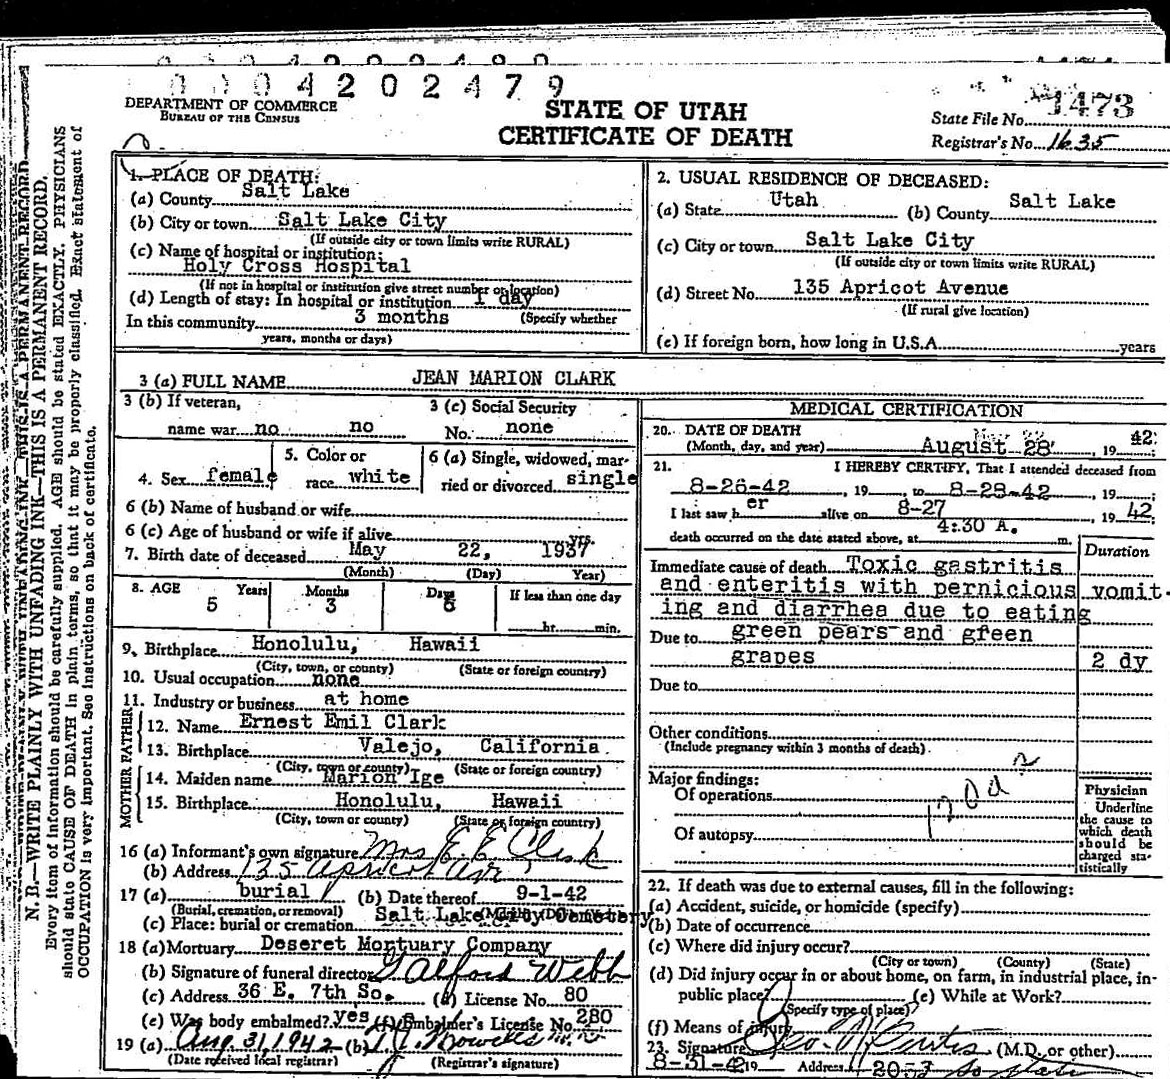 0004202479
DEPARTMENT OF COMMERCE
BUREAU OF THE CENSUS
STATE OF UTAH
CERTIFICATE OF DEATH
State File No. 1473
Registrar's No. 1635
N. B.—WRITE PLAINLY WITH UNFADING INK—THIS IS A PERMANENT RECORD.
Every item of information should be carefully supplied. AGE should be stated EXACTLY. PHYSICIANS
should state CAUSE OF DEATH in plain terms, so that it may be properly classified. Exact statement of
OCCUPATION is very important. See instructions on back of certificate.
1. PLACE OF DEATH:
(a) County Salt Lake
(b) City or town Salt Lake City
(If outside city or town limits write RURAL)
(c) Name of hospital or institution:
Holy Cross Hospital
(If not in hospital or institution give street number or location)
(d) Length of stay: In hospital or institution 1 day
In this community 3 months (Specify whether
years, months or days)
2. USUAL RESIDENCE OF DECEASED:
(a) State Utah (b) County Salt Lake
(c) City or town Salt Lake City
(If outside city or town limits write RURAL)
(d) Street No. 135 Apricot Avenue
(If rural give location)
(e) If foreign born, how long in U.S.A. years
3 (a) FULL NAME JEAN MARION CLARK
3 (b) If veteran,
name war no no
3 (c) Social Security
No. none
4. Sex female
5. Color or
race white
6 (a) Single, widowed, mar-
ried or divorced single
6 (b) Name of husband or wife
6 (c) Age of husband or wife if alive yrs.
7. Birth date of deceased May 22, 1937
(Month) (Day) Year)
8. AGE Years Months Days If less than one day
5 3 6
hr. min.
9. Birthplace Honolulu, Hawaii
(City, town, or county) (State or foreign country)
10. Usual occupation none
11. Industry or business at home
FATHER
12. Name Ernest Emil Clark
13. Birthplace Valejo, California
(City, town or county) (State or foreign country)
MOTHER
14. Maiden name Marion Ige
15. Birthplace Honolulu, Hawaii
(City, town or county) (State or foreign country)
16 (a) Informant's own signature Mrs E. E. Clark
(b) Address 135 Apricot Ave
17 (a) burial (b) Date thereof 9-1-42
(Burial, cremation, or removal)
(c) Place: burial or cremation Salt Lake City Cemetery
18 (a) Mortuary Deseret Mortuary Company
(b) Signature of funeral director Galford Webb
(c) Address 36 E. 7th So. (d) License No. 80
(e) Was body embalmed? yes (f) Embalmer's License No. 280
19 (a) Aug. 31, 1942 (b)
(Date received local registrar) (Registrar's signature)
MEDICAL CERTIFICATION
20. DATE OF DEATH
(Month, day, and year) August 28, 1942
21. I HEREBY CERTIFY, That I attended deceased from
8-26-42, 19 to 8-28-42, 19 ;
I last saw her alive on 8-27, 19 42,
death occurred on the date stated above, at 4:30 A. m.
Duration
Immediate cause of death Toxic gastritis
and enteritis with pernicious vomit-
ing and diarrhea due to eating
Due to green pears and green
grapes 2 dy
Due to
Other conditions
(Include pregnancy within 3 months of death)
Major findings:
Of operations
Of autopsy
Physician
Underline
the cause to
which death
should be
charged sta-
tistically
22. If death was due to external causes, fill in the following:
(a) Accident, suicide, or homicide (specify)
(b) Date of occurrence
(c) Where did injury occur?
(City or town) (County) (State)
(d) Did injury occur in or about home, on farm, in industrial place, in-
public place? (e) While at Work?
(Specify type of place)
(f) Means of injury
23. Signature Geo. N. Curtis (M.D. or other)
8-31-42 19 Address 2053 So State